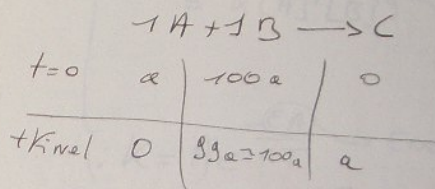 1A + 1B → C
t=0 a 100a 0
tfinel 0 99a≃100a a